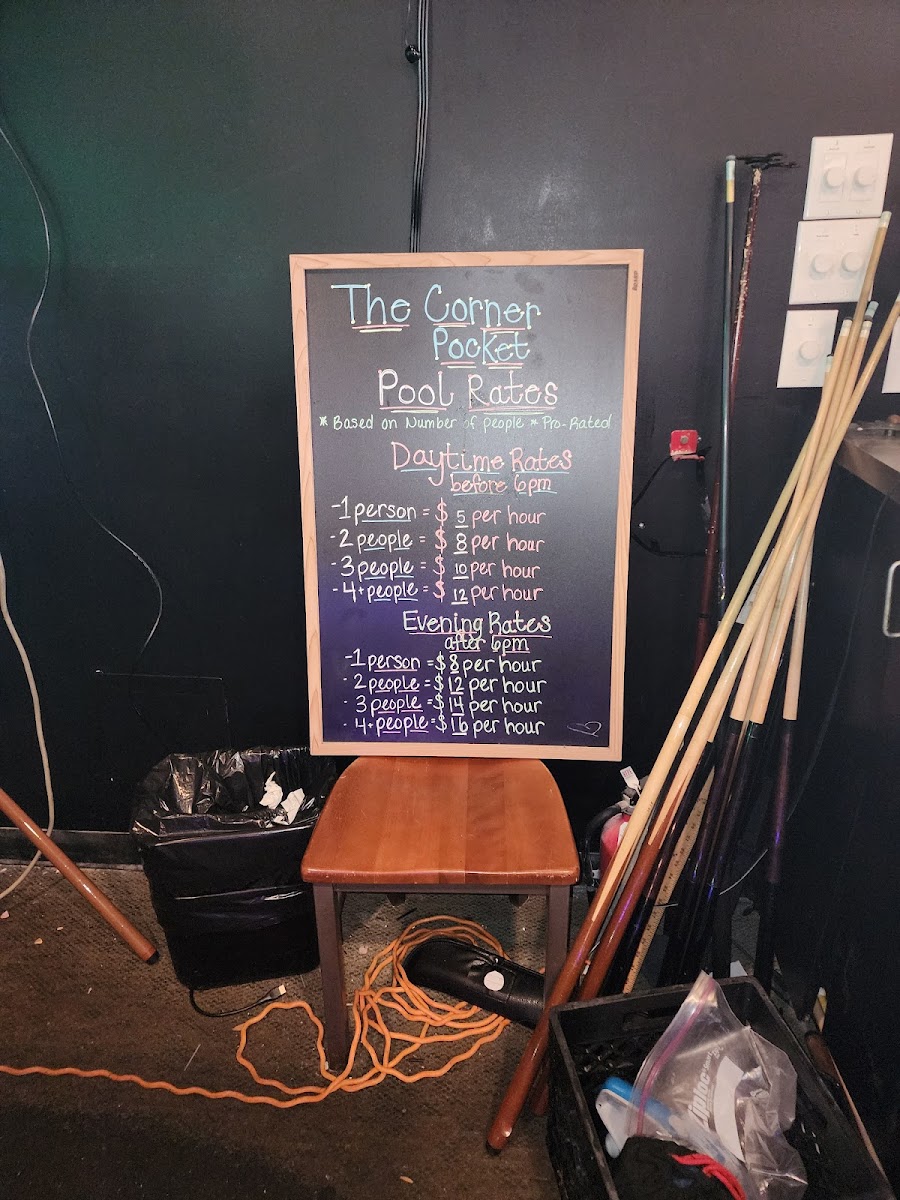 The Corner
Pocket
Pool Rates
* Based on Number of people * Pro-Rated
Daytime Rates
before 6pm
- 1 person = $ 5 per hour
- 2 people = $ 8 per hour
- 3 people = $ 10 per hour
- 4+ people = $ 12 per hour
Evening Rates
after 6pm
- 1 person = $ 8 per hour
- 2 people = $ 12 per hour
- 3 people = $ 14 per hour
- 4+ people = $ 16 per hour
Ziploc